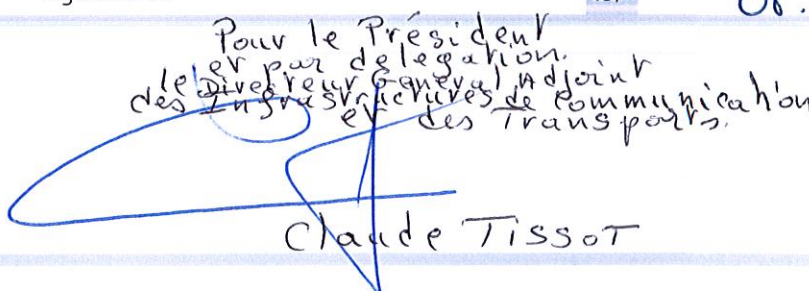 Pour le Président
et par délégation.
le Directeur Général Adjoint
des Infrastructures de Communication
et des Transports.
Claude TissoT